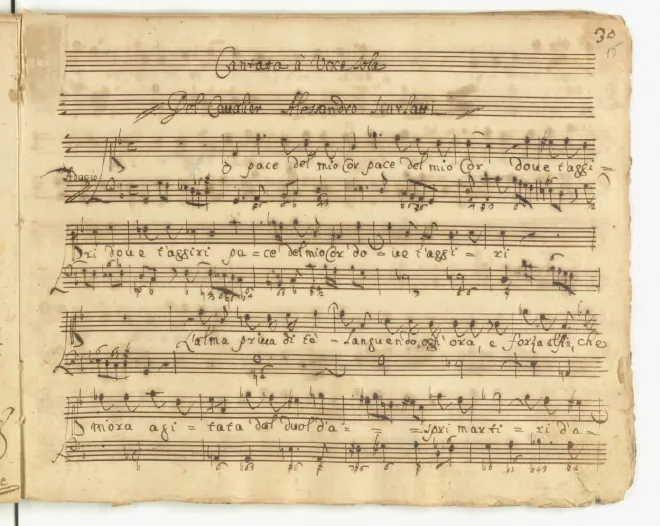 30
15
Cantata à Voce Sola
Del Cavalier Alesandro Scarlatti
Adagio
O pace del mio Cor pace del mio Cor doue t'aggi =
ri doue t'aggiri pa = ce del mio Cor do = ue t'aggi = ri
L'alma priua di tè - languendo ogn'ora, e forza che
mora agi = tata dal duol d'a = = = spri marti = ri d'a =